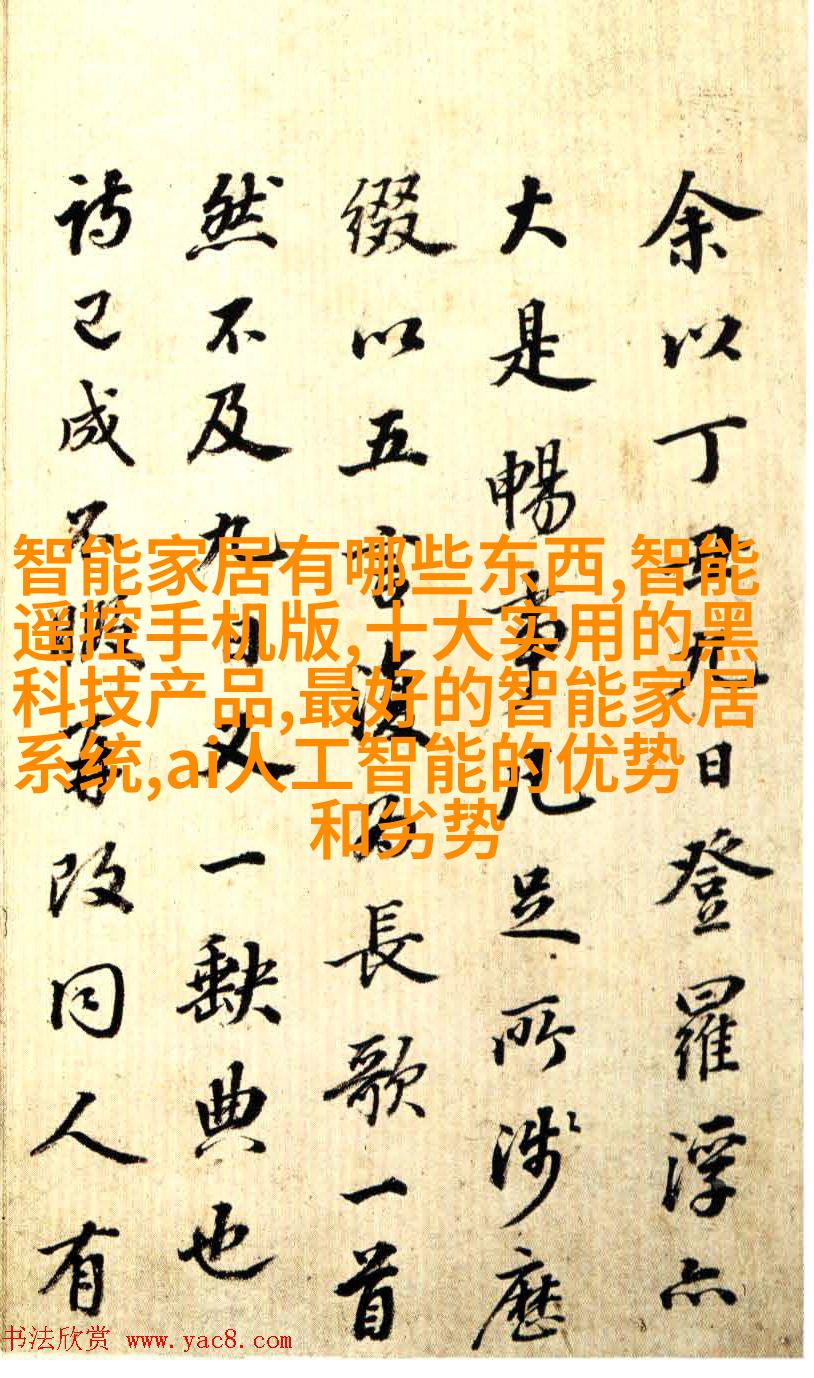 余以丁丑九日登羅浮亦
大是暢凡足所涉歷
綴以五言復為長歌一首
然不及九日又一缺典也
詩已成不暇再改同人有
智能家居有哪些东西,智能
遥控手机版,十大实用的黑
科技产品,最好的智能家居
系统,ai人工智能的优势
和劣势
书法欣赏 www.yac8.com